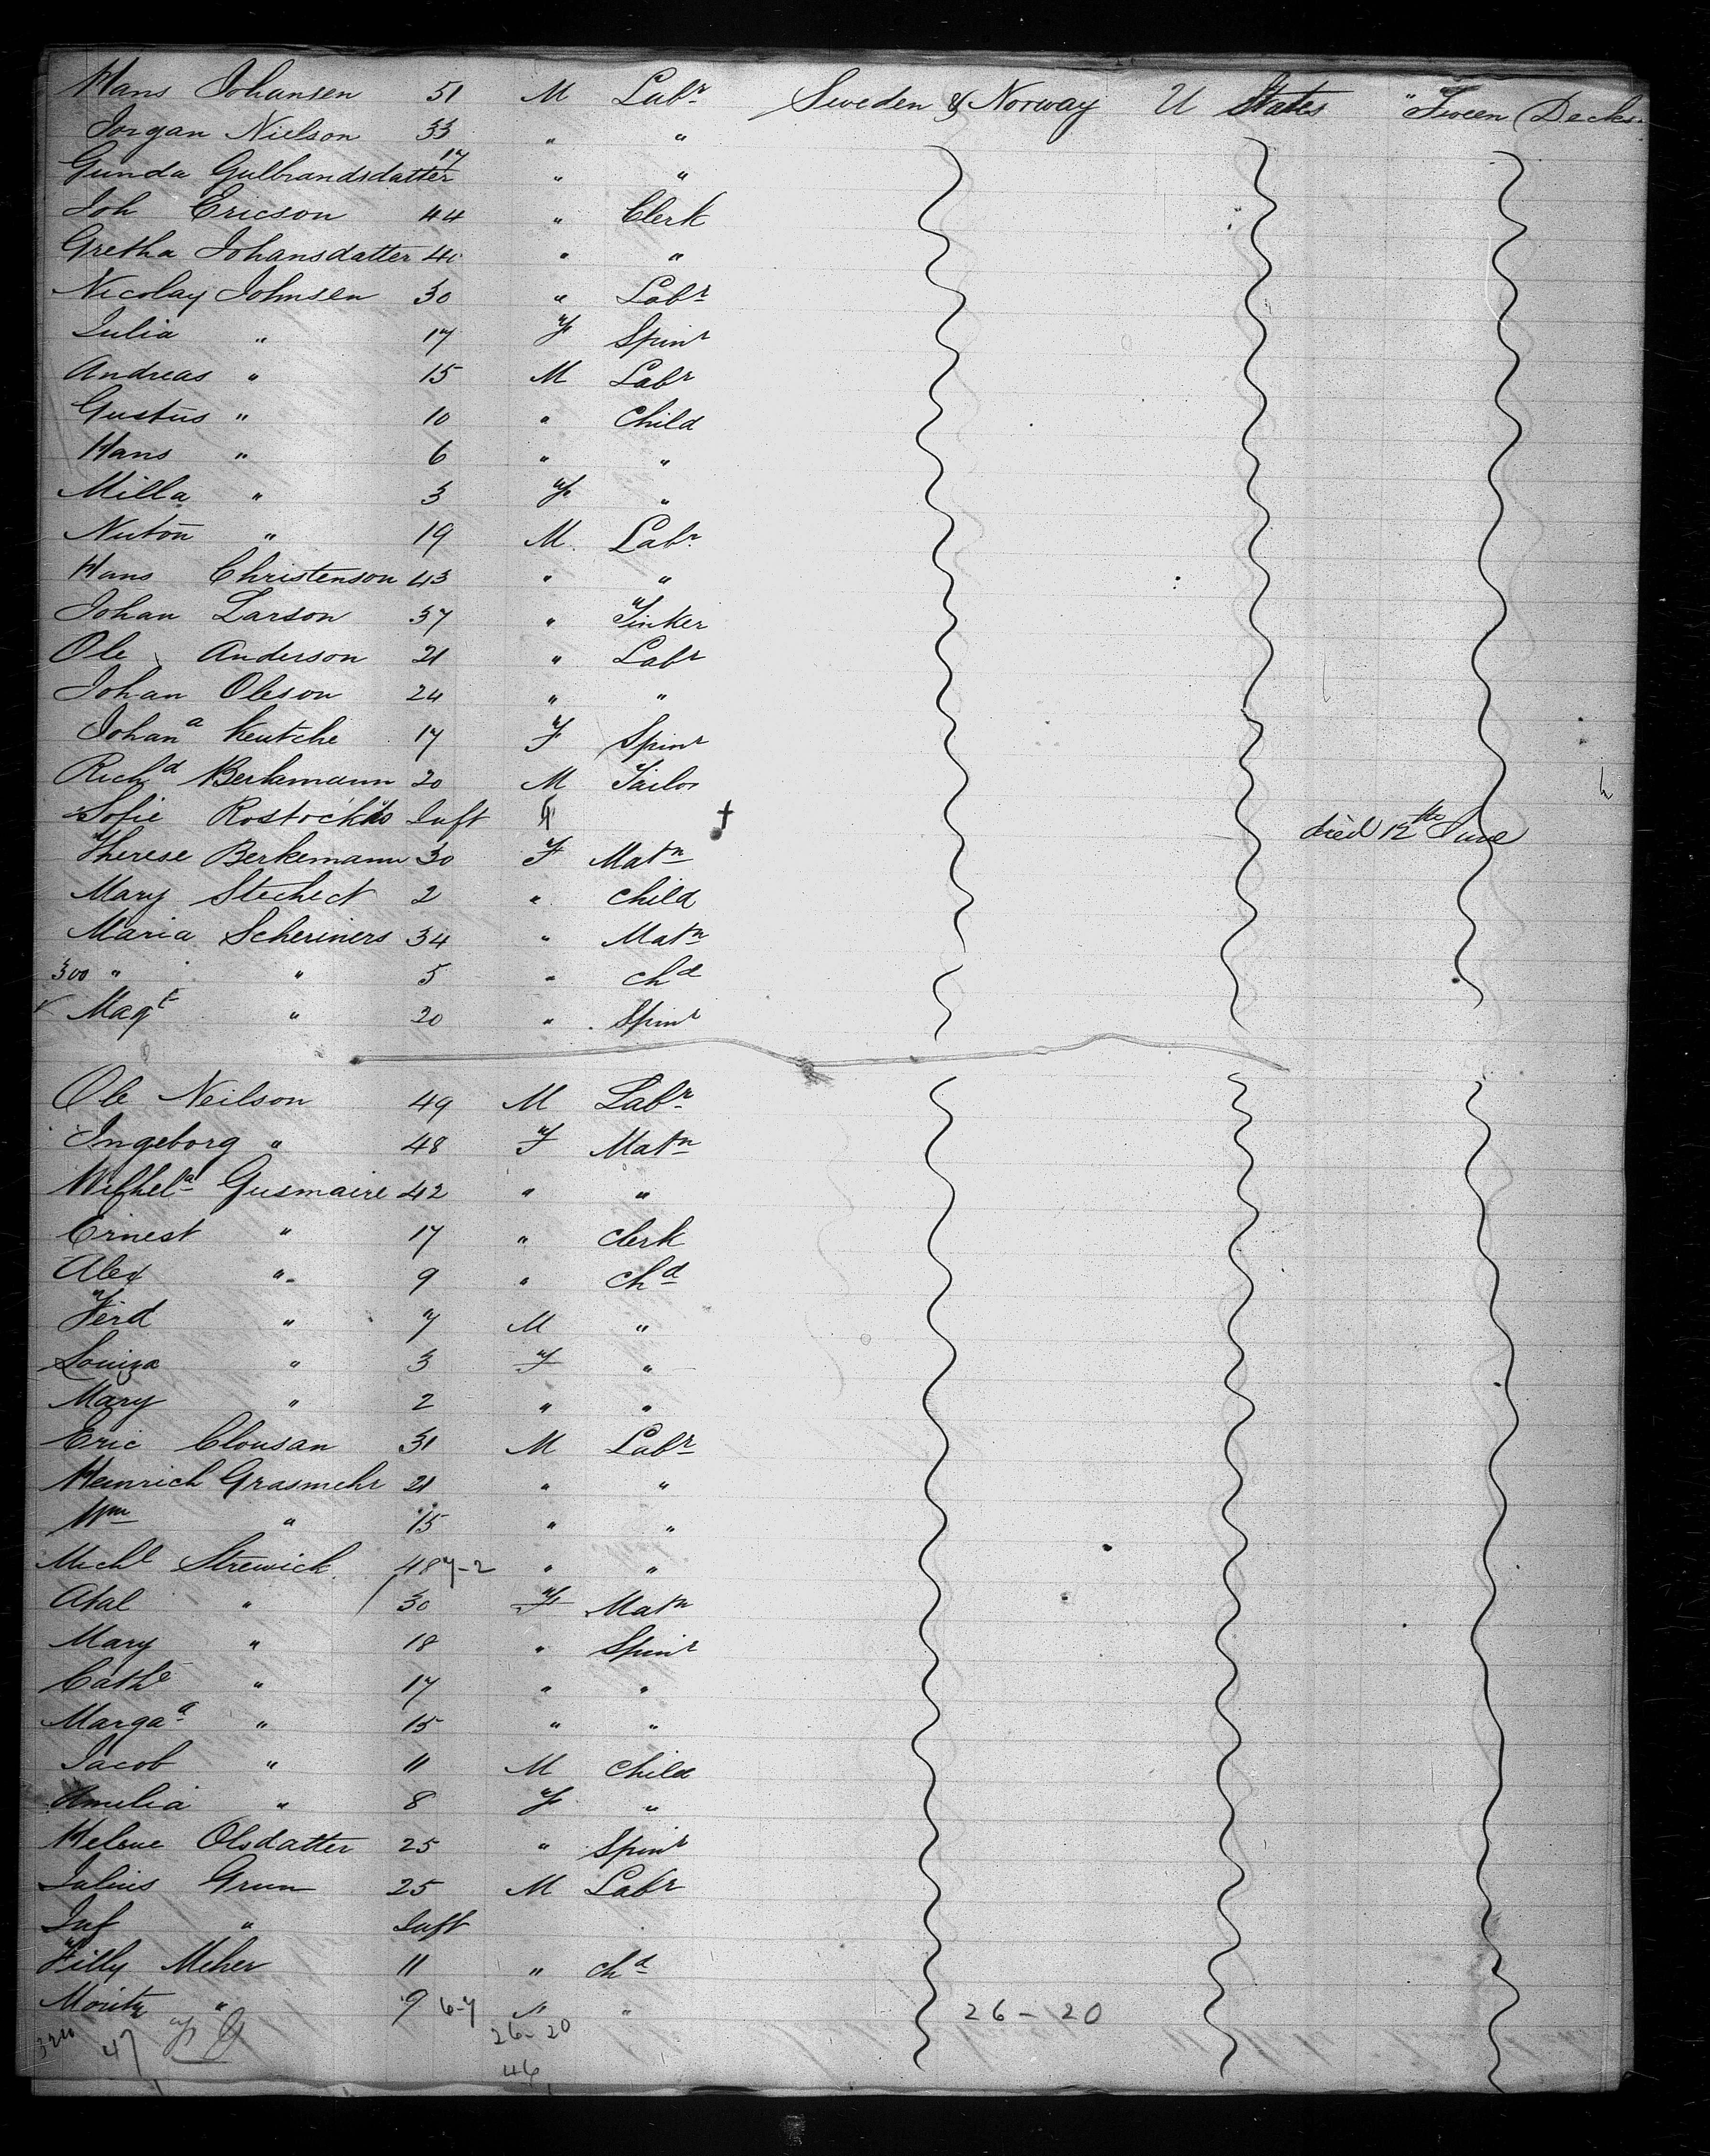 Hans Johansen 51 M Labr Sweden & Norway U States "Tween Decks
Jorgan Nielson 33 " "
Gunda Gulbrandsdatter 17 " "
Joh Ericson 44 " Clerk
Gretha Johansdatter 40 " "
Nicolay Johnsen 30 " Labr
Julia " 17 F Spinr
Andreas " 15 M Labr
Gustus " 10 " Child
Hans " 6 " "
Milla " 3 F "
Nuton " 19 M Labr
Hans Christenson 43 " "
Johan Larson 37 " Tinker
Ole Anderson 21 " Labr
Johan Oleson 24 " "
Johana Keutche 17 F Spinr
Richd Berkamann 20 M Tailor
Sofie Rostock Inft F + died 12th June
Therese Berkemann 30 F Matn
Mary Stechect 2 " child
Maria Scheriners 34 " Matn
300 " " 5 " chd
Magt " 20 " Spinr
Ole Neilson 49 M Labr
Ingeborg " 48 F Matn
Wilhela Gusmaire 42 " "
Ernest " 17 " Clerk
Alex " 9 " chd
Ferd " 7 M "
Louiza " 3 F "
Mary " 2 " "
Eric Clousan 31 M Labr
Heinrich Grasmehr 21 " "
Wm " 15 " "
Michl Strewick 48 7-2 " "
Atal " 30 F Matn
Mary " 18 " Spinr
Cathe " 17 " "
Margaa " 15 " "
Jacob " 11 M Child
Amelia " 8 F "
Helene Olsdatter 25 " Spinr
Julius Grun 25 M Labr
Inf " Inft
Filly Meher 11 " chd
Moritz " 9 6-7 " " 26-20
47 26-20
46